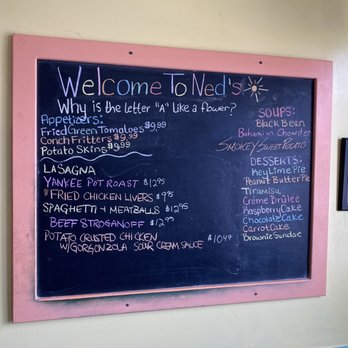 Welcome To Ned's
Why is the letter "A" like a flower?
Appetizers:
Fried Green Tomatoes $9.99
Conch Fritters $9.99
Potato Skins $9.99
LASAGNA
YANKEE POT ROAST $12.95
*FRIED CHICKEN LIVERS $9.95
SPAGHETTI + MEATBALLS $12.95
BEEF STROGANOFF $12.95
POTATO CRUSTED CHICKEN
W/GORGONZOLA SOUR CREAM SAUCE $10.49
SOUPS:
Black Bean
Bahamian Chowder
SMOKEY SWEET POTATO
DESSERTS:
Key Lime Pie
Peanut Butter Pie
Tiramisu
Crème Brûlée
Raspberry Cake
Chocolate Cake
Carrot Cake
Brownie Sundae